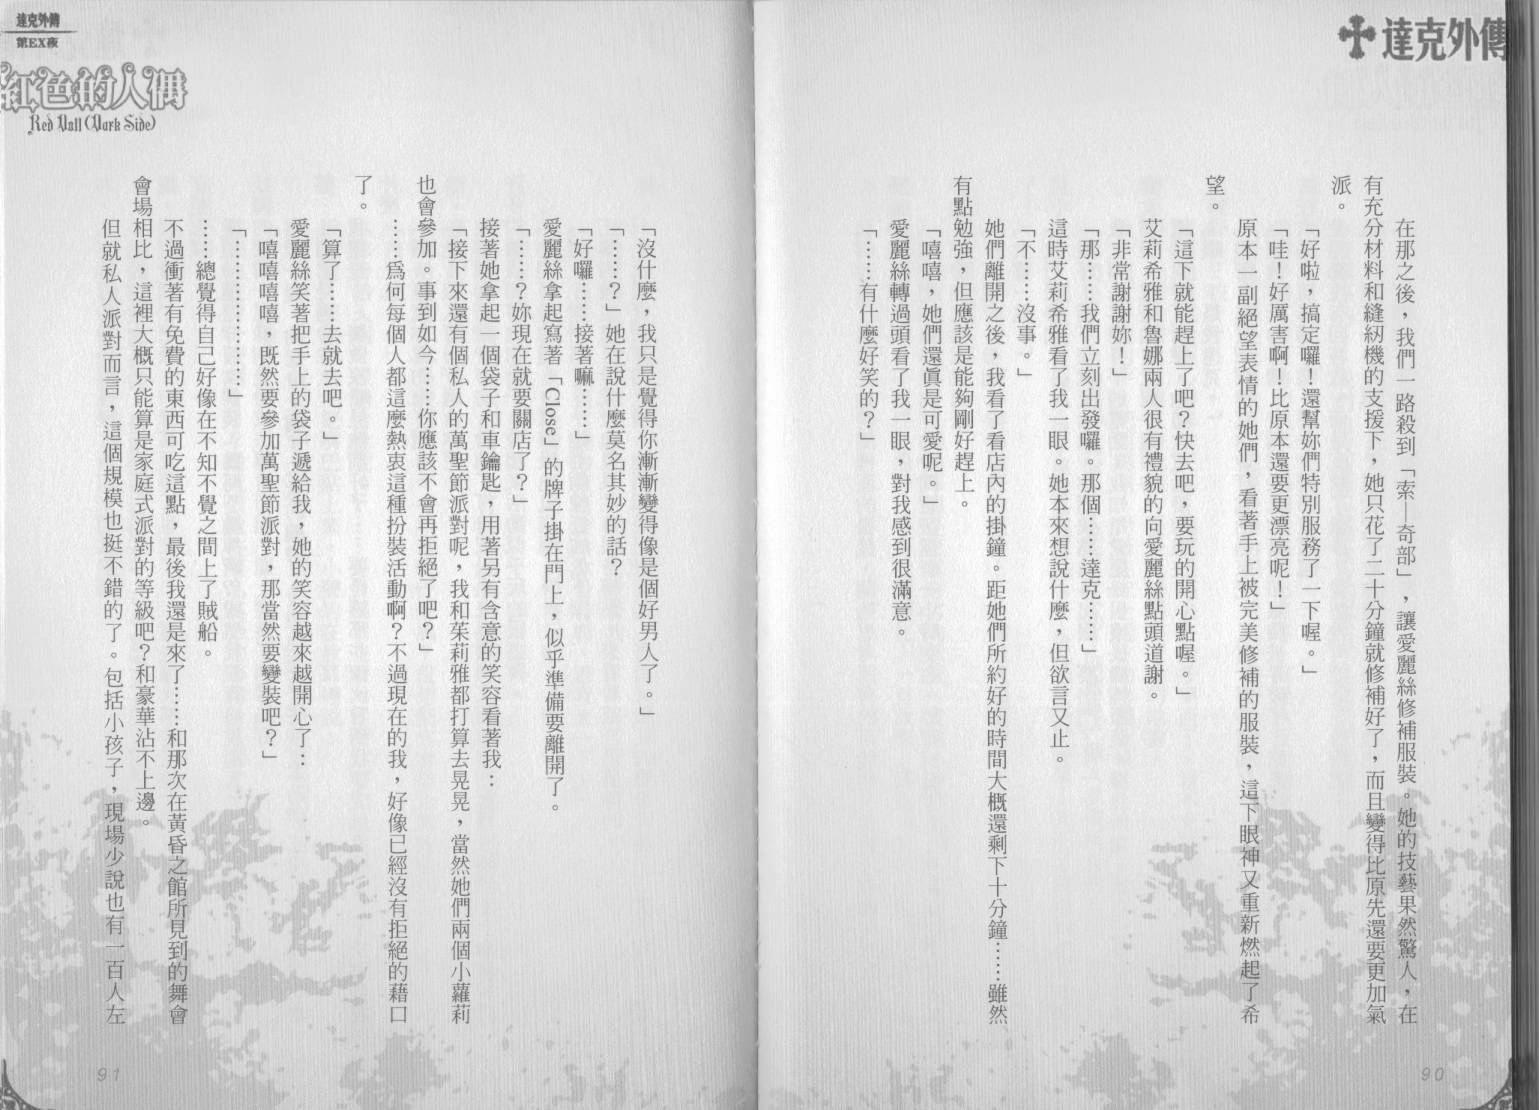 達克外傳
在那之後，我們一路殺到「索—奇部」，讓愛麗絲修補服裝。她的技藝果然驚人，在
有充分材料和縫紉機的支援下，她只花了二十分鐘就修補好了，而且變得比原先還要更加氣
派。
「好啦，搞定囉！還幫妳們特別服務了一下喔。」
「哇！好厲害啊！比原本還要更漂亮呢！」
原本一副絕望表情的她們，看著手上被完美修補的服裝，這下眼神又重新燃起了希
望。
「這下就能趕上了吧？快去吧，要玩的開心點喔。」
艾莉希雅和魯娜兩人很有禮貌的向愛麗絲點頭道謝。
「非常謝謝妳！」
「那……我們立刻出發囉。那個……達克……」
這時艾莉希雅看了我一眼。她本來想說什麼，但欲言又止。
「不……沒事。」
她們離開之後，我看了看店內的掛鐘。距她們所約好的時間大概還剩下十分鐘……雖然
有點勉強，但應該是能夠剛好趕上。
「嘻嘻，她們還真是可愛呢。」
愛麗絲轉過頭看了我一眼，對我感到很滿意。
「……有什麼好笑的？」
90
達克外傳
第EX夜
紅色的人偶
Red Doll (Dark Side)
「沒什麼，我只是覺得你漸漸變得像是個好男人了。」
「……？」她在說什麼莫名其妙的話？
「好囉……接著嘛……」
愛麗絲拿起寫著「Close」的牌子掛在門上，似乎準備要離開了。
「……？妳現在就要關店了？」
接著她拿起一個袋子和車鑰匙，用著另有含意的笑容看著我：
「接下來還有個私人的萬聖節派對呢，我和茱莉雅都打算去晃晃，當然她們兩個小蘿莉
也會參加。事到如今……你應該不會再拒絕了吧？」
……為何每個人都這麼熱衷這種扮裝活動啊？不過現在的我，好像已經沒有拒絕的藉口
了。
「算了……去就去吧。」
愛麗絲笑著把手上的袋子遞給我，她的笑容越來越開心了：
「嘻嘻嘻嘻，既然要參加萬聖節派對，那當然要變裝吧？」
「…………………」
……總覺得自己好像在不知不覺之間上了賊船。
不過衝著有免費的東西可吃這點，最後我還是來了……和那次在黃昏之館所見到的舞會
會場相比，這裡大概只能算是家庭式派對的等級吧？和豪華沾不上邊。
但就私人派對而言，這個規模也挺不錯的了。包括小孩子，現場少說也有一百人左
91